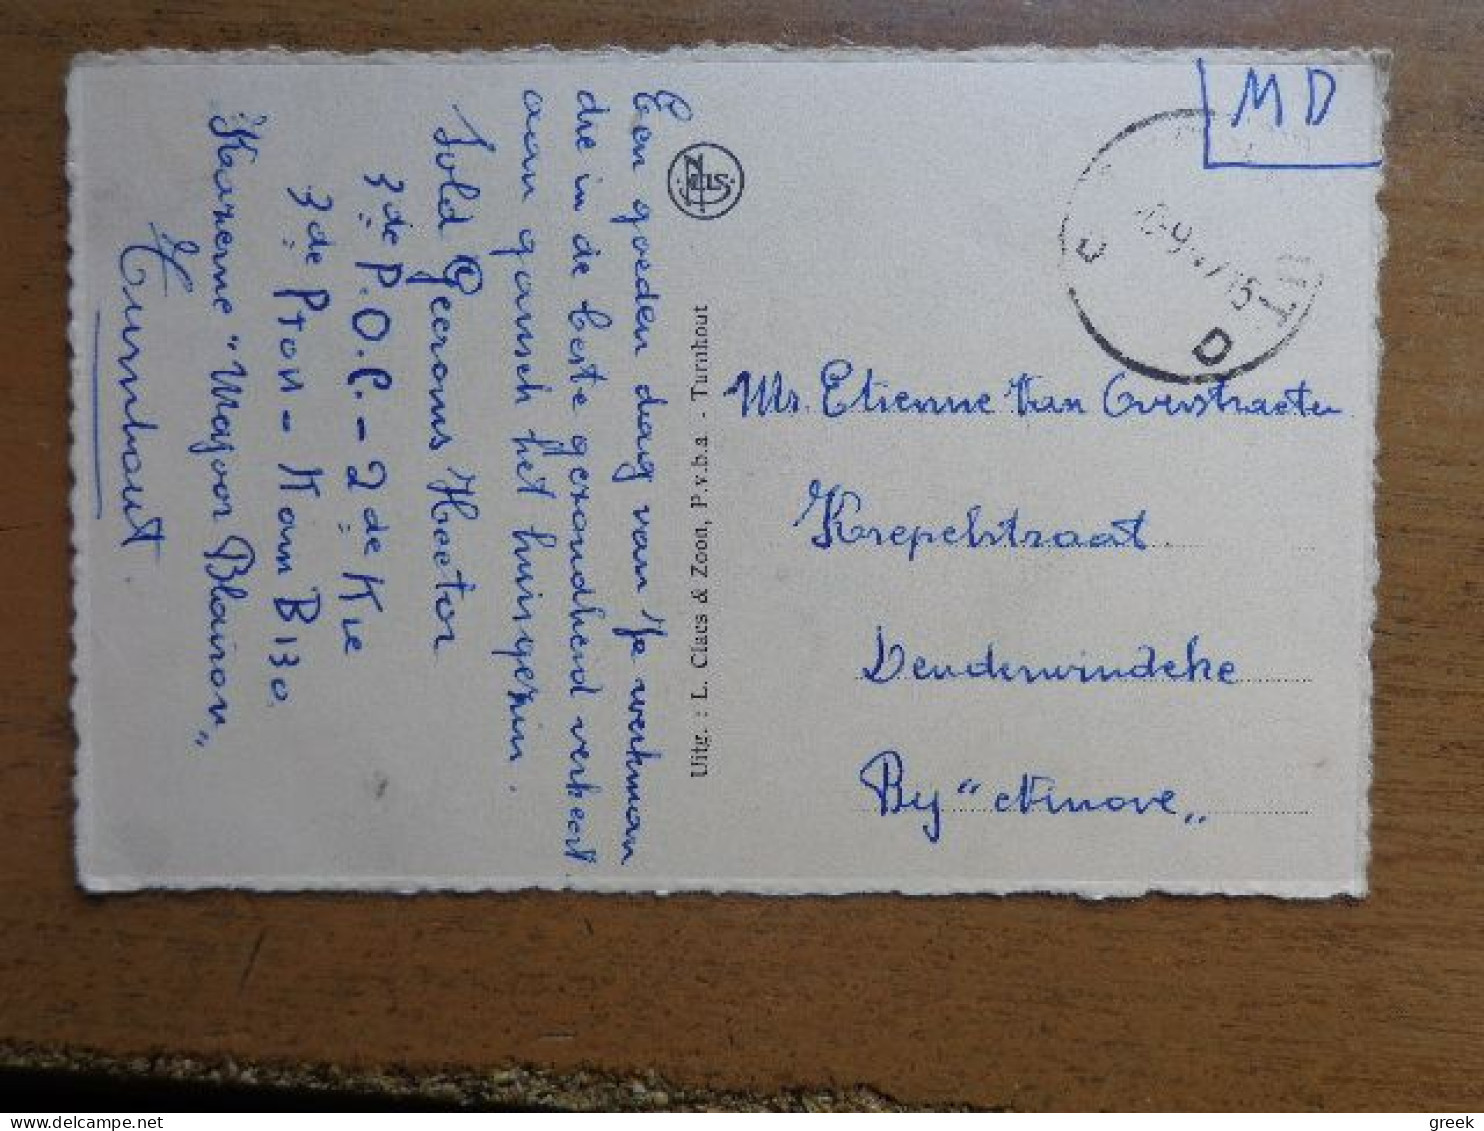 Een goeden dag van Je werkman
die in de beste gezondheid verkeert
aan gansch het huisgezin.
Sold Geeroms Hector
3de P.O.C. - 2de Kie
3de Pton - Kam B130
Kazerne "Majoor Blairon„
Turnhout
Uitg. : L. Claes & Zoon, P.v.b.a. - Turnhout
MD
D
Mr. Etienne Van Overstraeten
Krepelstraat
Denderwindeke
By "Ninove„
greek